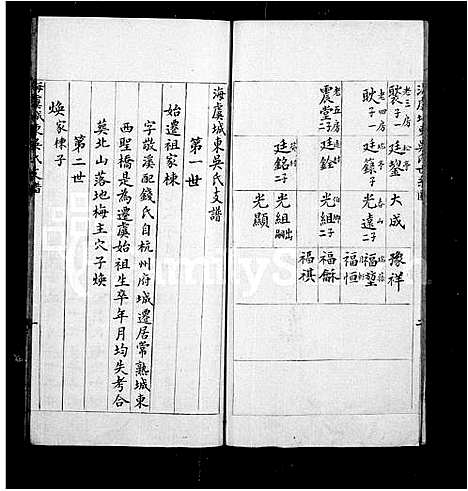 老三房
裂子一 廷鏊 大成 豫祥
老四房
耿子一 廷籙子一 光遠二子 福堃
福恒
老五房
震堂二子 廷銓 光組二子 福龢
福祺
廷銘二子 光組嗣出
光顯
海虞城東吳氏支譜
第一世
始遷祖家棟
字敬溪配錢氏自杭州府城遷居常熟城東
西聖橋是為遷虞始祖生卒年月均失考合
葬北山落地梅主穴子煥
第二世
煥家棟子
海虞城東吳氏支譜
一